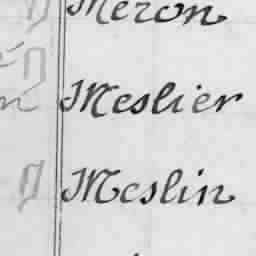 Meron
Meslier
Meslin